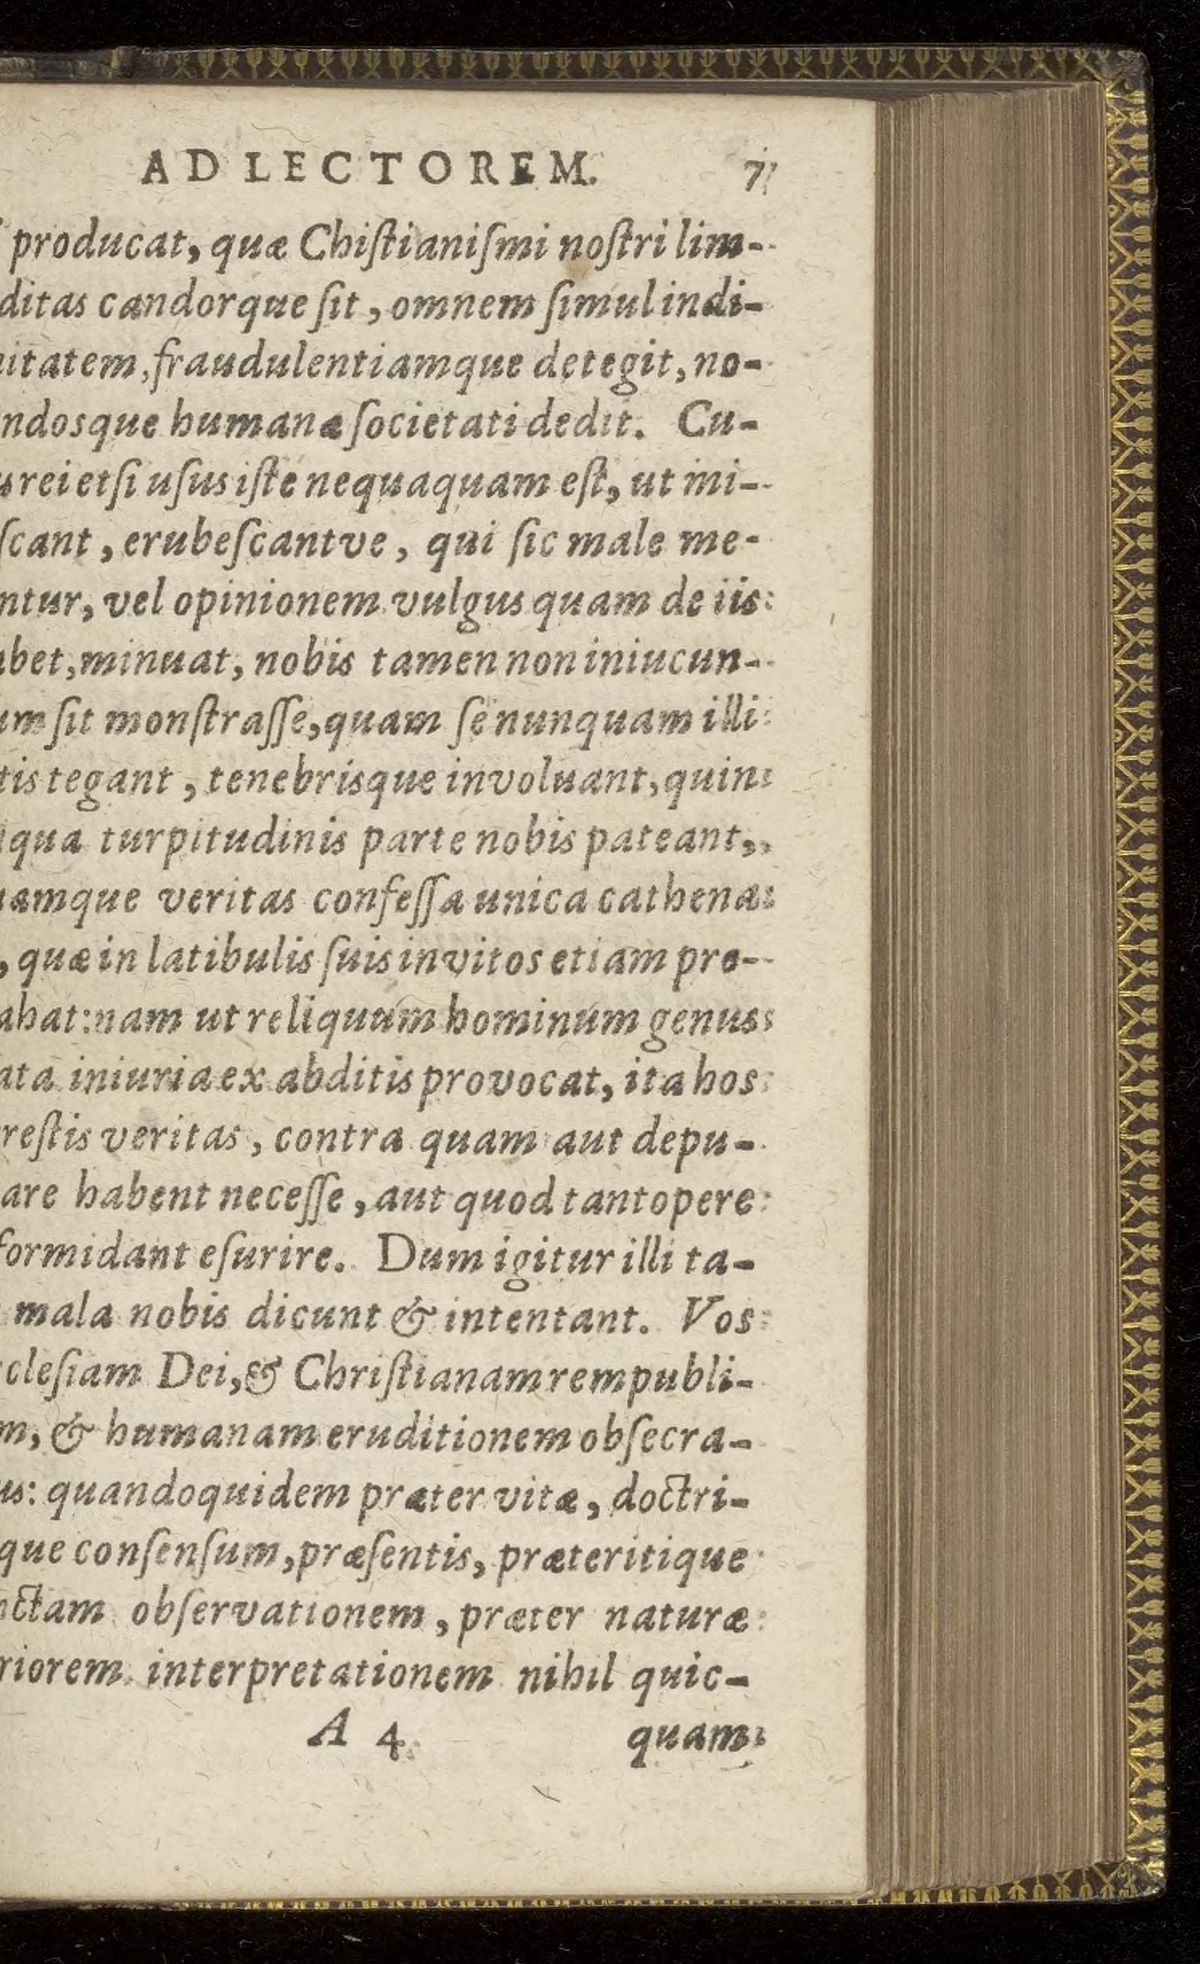 AD LECTOREM. 7
producat, quæ Chiſtianiſmi noſtri lim-
ditas candorque ſit, omnem ſimul indi-
itatem, fraudulentiamque detegit, no-
ndosque humanæ ſocietati dedit. Cu-
rei etſi uſus iſte nequaquam eſt, ut mi-
ſcant, erubeſcantve, qui ſic male me-
ntur, vel opinionem vulgus quam de iis
bet, minuat, nobis tamen non iniucun-
um ſit monſtraſſe, quam ſe nunquam illi
tis tegant, tenebrisque involuant, quin
qua turpitudinis parte nobis pateant,
amque veritas confeſſa unica cathena
, quæ in latibulis ſuis invitos etiam pro-
ahat: nam ut reliquum hominum genus
ata iniuria ex abditis provocat, ita hos
reſtis veritas, contra quam aut depu-
are habent neceſſe, aut quod tantopere
formidant eſurire. Dum igitur illi ta-
mala nobis dicunt & intentant. Vos
cleſiam Dei, & Chriſtianam rempubli-
m, & humanam eruditionem obſecra-
us: quandoquidem præter vitæ, doctri-
que conſenſum, præſentis, præteritique
ctam obſervationem, præter naturæ
riorem interpretationem nihil quic-
A 4 quam